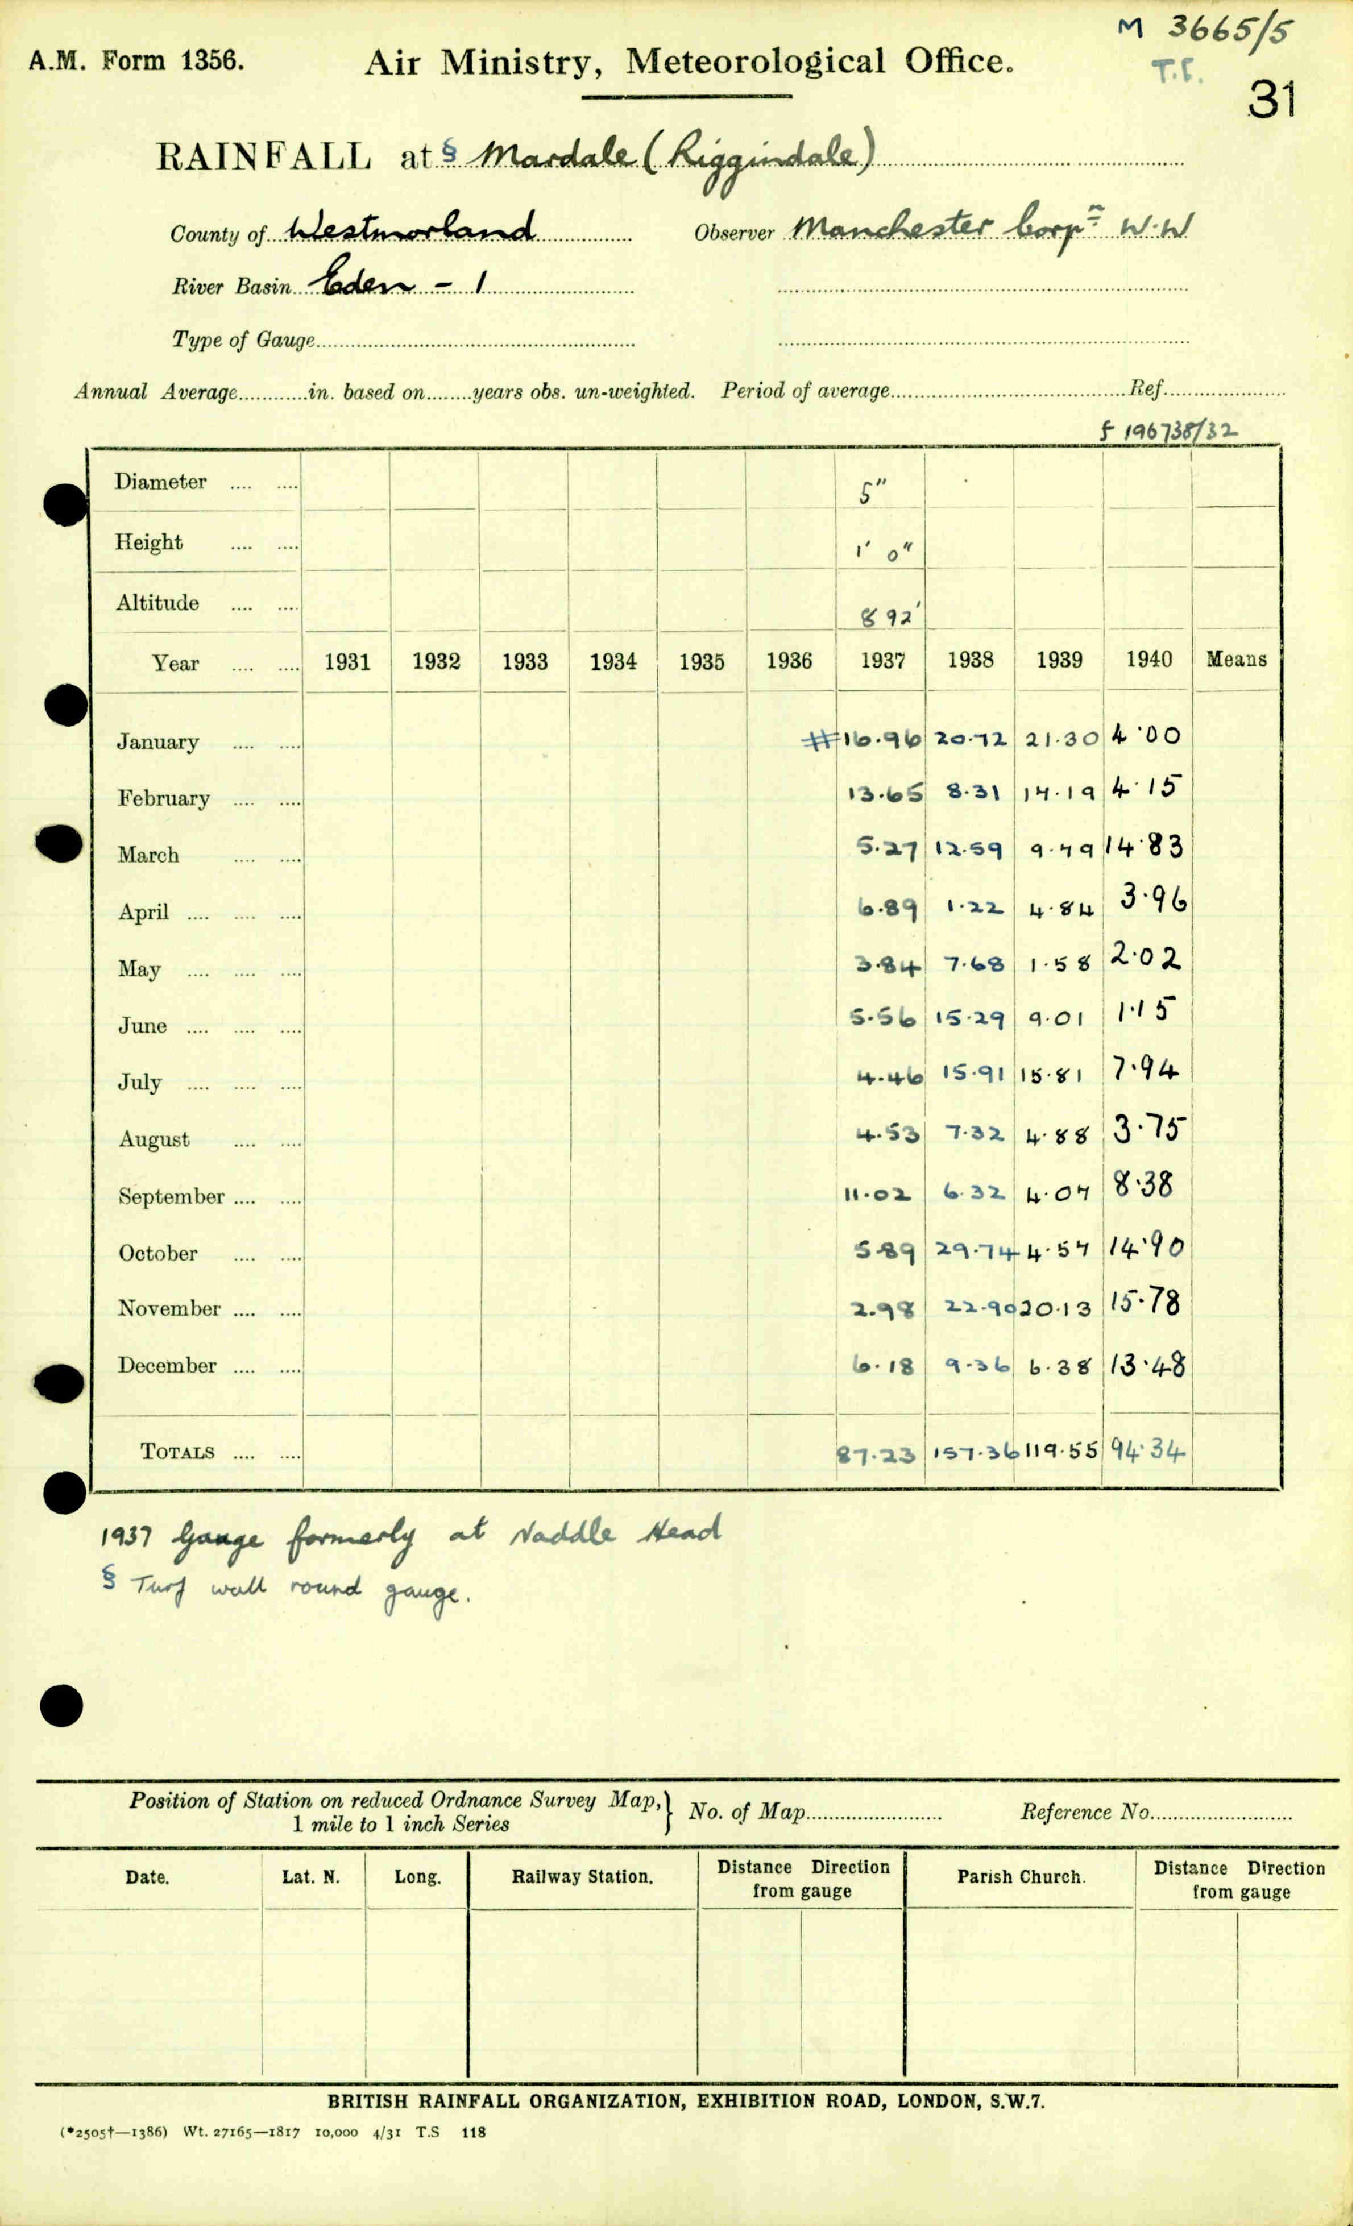 M 3665/5
A.M. Form 1356. Air Ministry, Meteorological Office. T.S.
31
RAINFALL at § Mardale (Riggindale)
County of Westmorland Observer Manchester Corpⁿ W.W
River Basin Eden - 1
Type of Gauge
Annual Average in. based on years obs. un-weighted. Period of average Ref.
f 196738/32
Diameter 5"
Height 1' 0"
Altitude 892'
Year 1931 1932 1933 1934 1935 1936 1937 1938 1939 1940 Means
January #16.96 20.72 21.30 4.00
February 13.65 8.31 17.19 4.15
March 5.27 12.59 9.79 14.83
April 6.89 1.22 4.84 3.96
May 3.84 7.68 1.58 2.02
June 5.56 15.29 9.01 1.15
July 4.46 15.91 15.81 7.94
August 4.53 7.32 4.88 3.75
September 11.02 6.32 4.07 8.38
October 5.89 29.74 4.57 14.90
November 2.98 22.90 20.13 15.78
December 6.18 9.36 6.38 13.48
TOTALS 87.23 157.36 119.55 94.34
1937 Gauge formerly at Naddle Head
§ Turf wall round gauge.
Position of Station on reduced Ordnance Survey Map, 1 mile to 1 inch Series } No. of Map Reference No.
Date. Lat. N. Long. Railway Station. Distance Direction from gauge Parish Church. Distance Direction from gauge
BRITISH RAINFALL ORGANIZATION, EXHIBITION ROAD, LONDON, S.W.7.
(*2505†—1386) Wt. 27165—1817 10,000 4/31 T.S 118